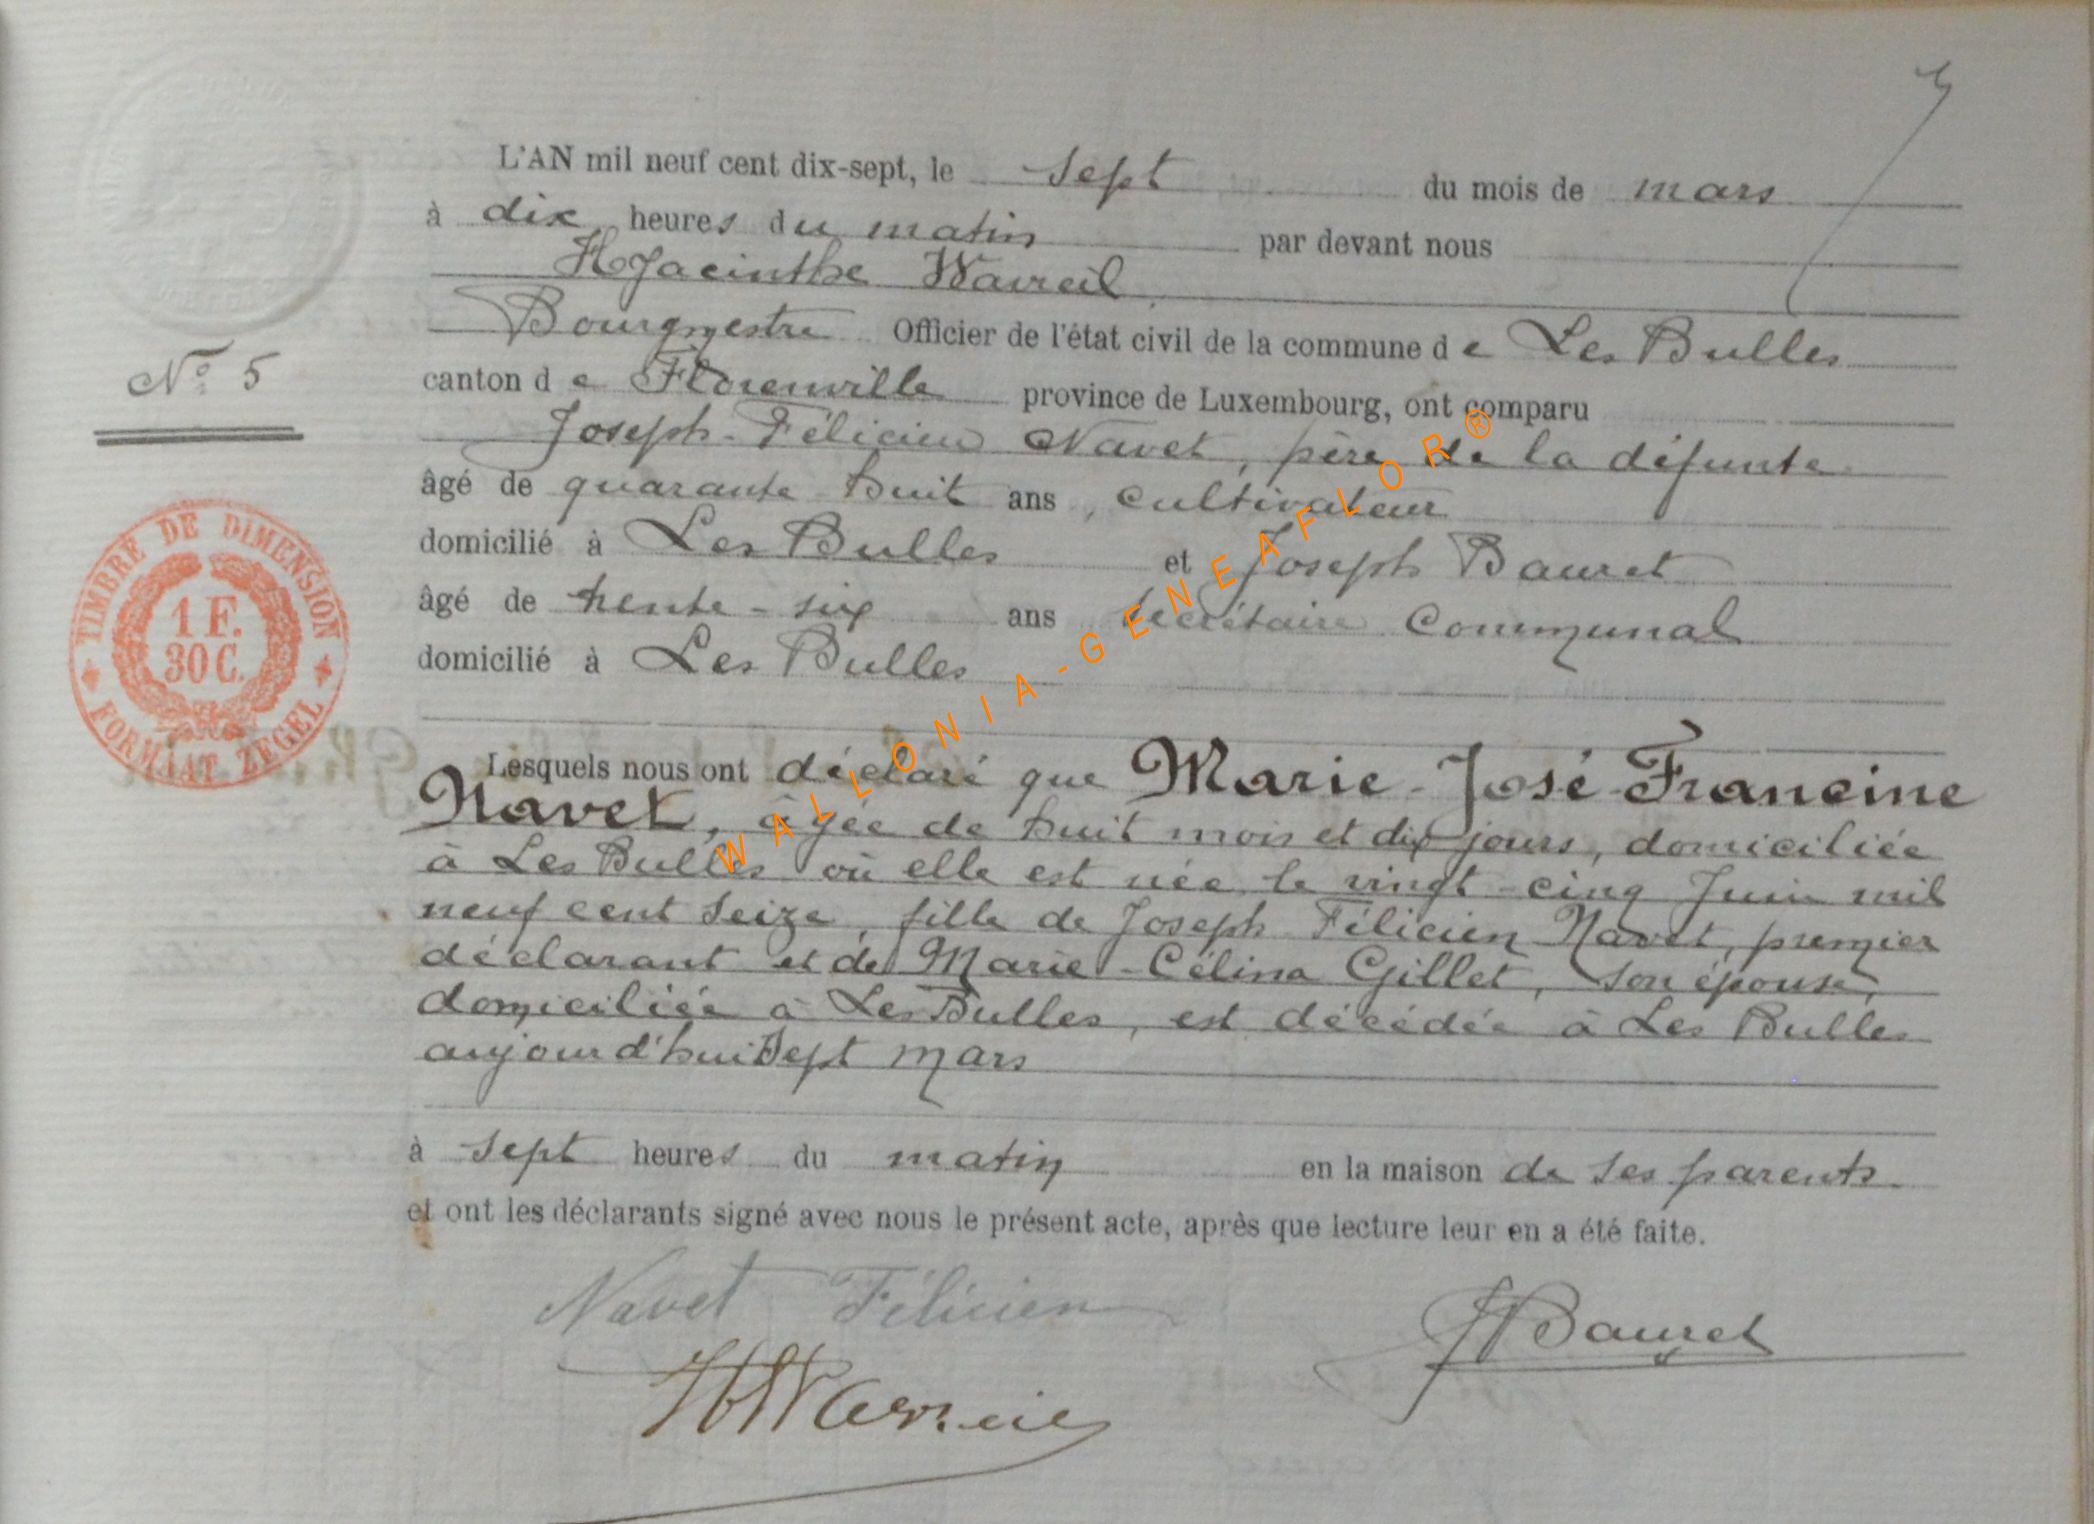 L'AN mil neuf cent dix-sept, le sept du mois de mars
à dix heures du matin par devant nous
Hyacinthe Wavreil
Bourgmestre Officier de l'état civil de la commune de Les Bulles
N° 5
canton de Florenville province de Luxembourg, ont comparu
Joseph-Félicien Navet, père de la défunte
âgé de quarante huit ans, cultivateur
domicilié à Les Bulles et Joseph Bauret
âgé de trente-six ans secrétaire communal
domicilié à Les Bulles
TIMBRE DE DIMENSION
1 F.
30 C.
FORMAAT ZEGEL
Lesquels nous ont déclaré que Marie-José-Francine
Navet, âgée de huit mois et dix jours, domiciliée
à Les Bulles où elle est née le vingt-cinq Juin mil
neuf cent seize, fille de Joseph Félicien Navet, premier
déclarant et de Marie-Célina Gillet, son épouse,
domiciliée à Les Bulles, est décédée à Les Bulles
aujourd'hui sept mars
à sept heures du matin en la maison de ses parents
et ont les déclarants signé avec nous le présent acte, après que lecture leur en a été faite.
Navet Félicien
JBauret
HWavreil
WALLONIA-GENEAFLOR®